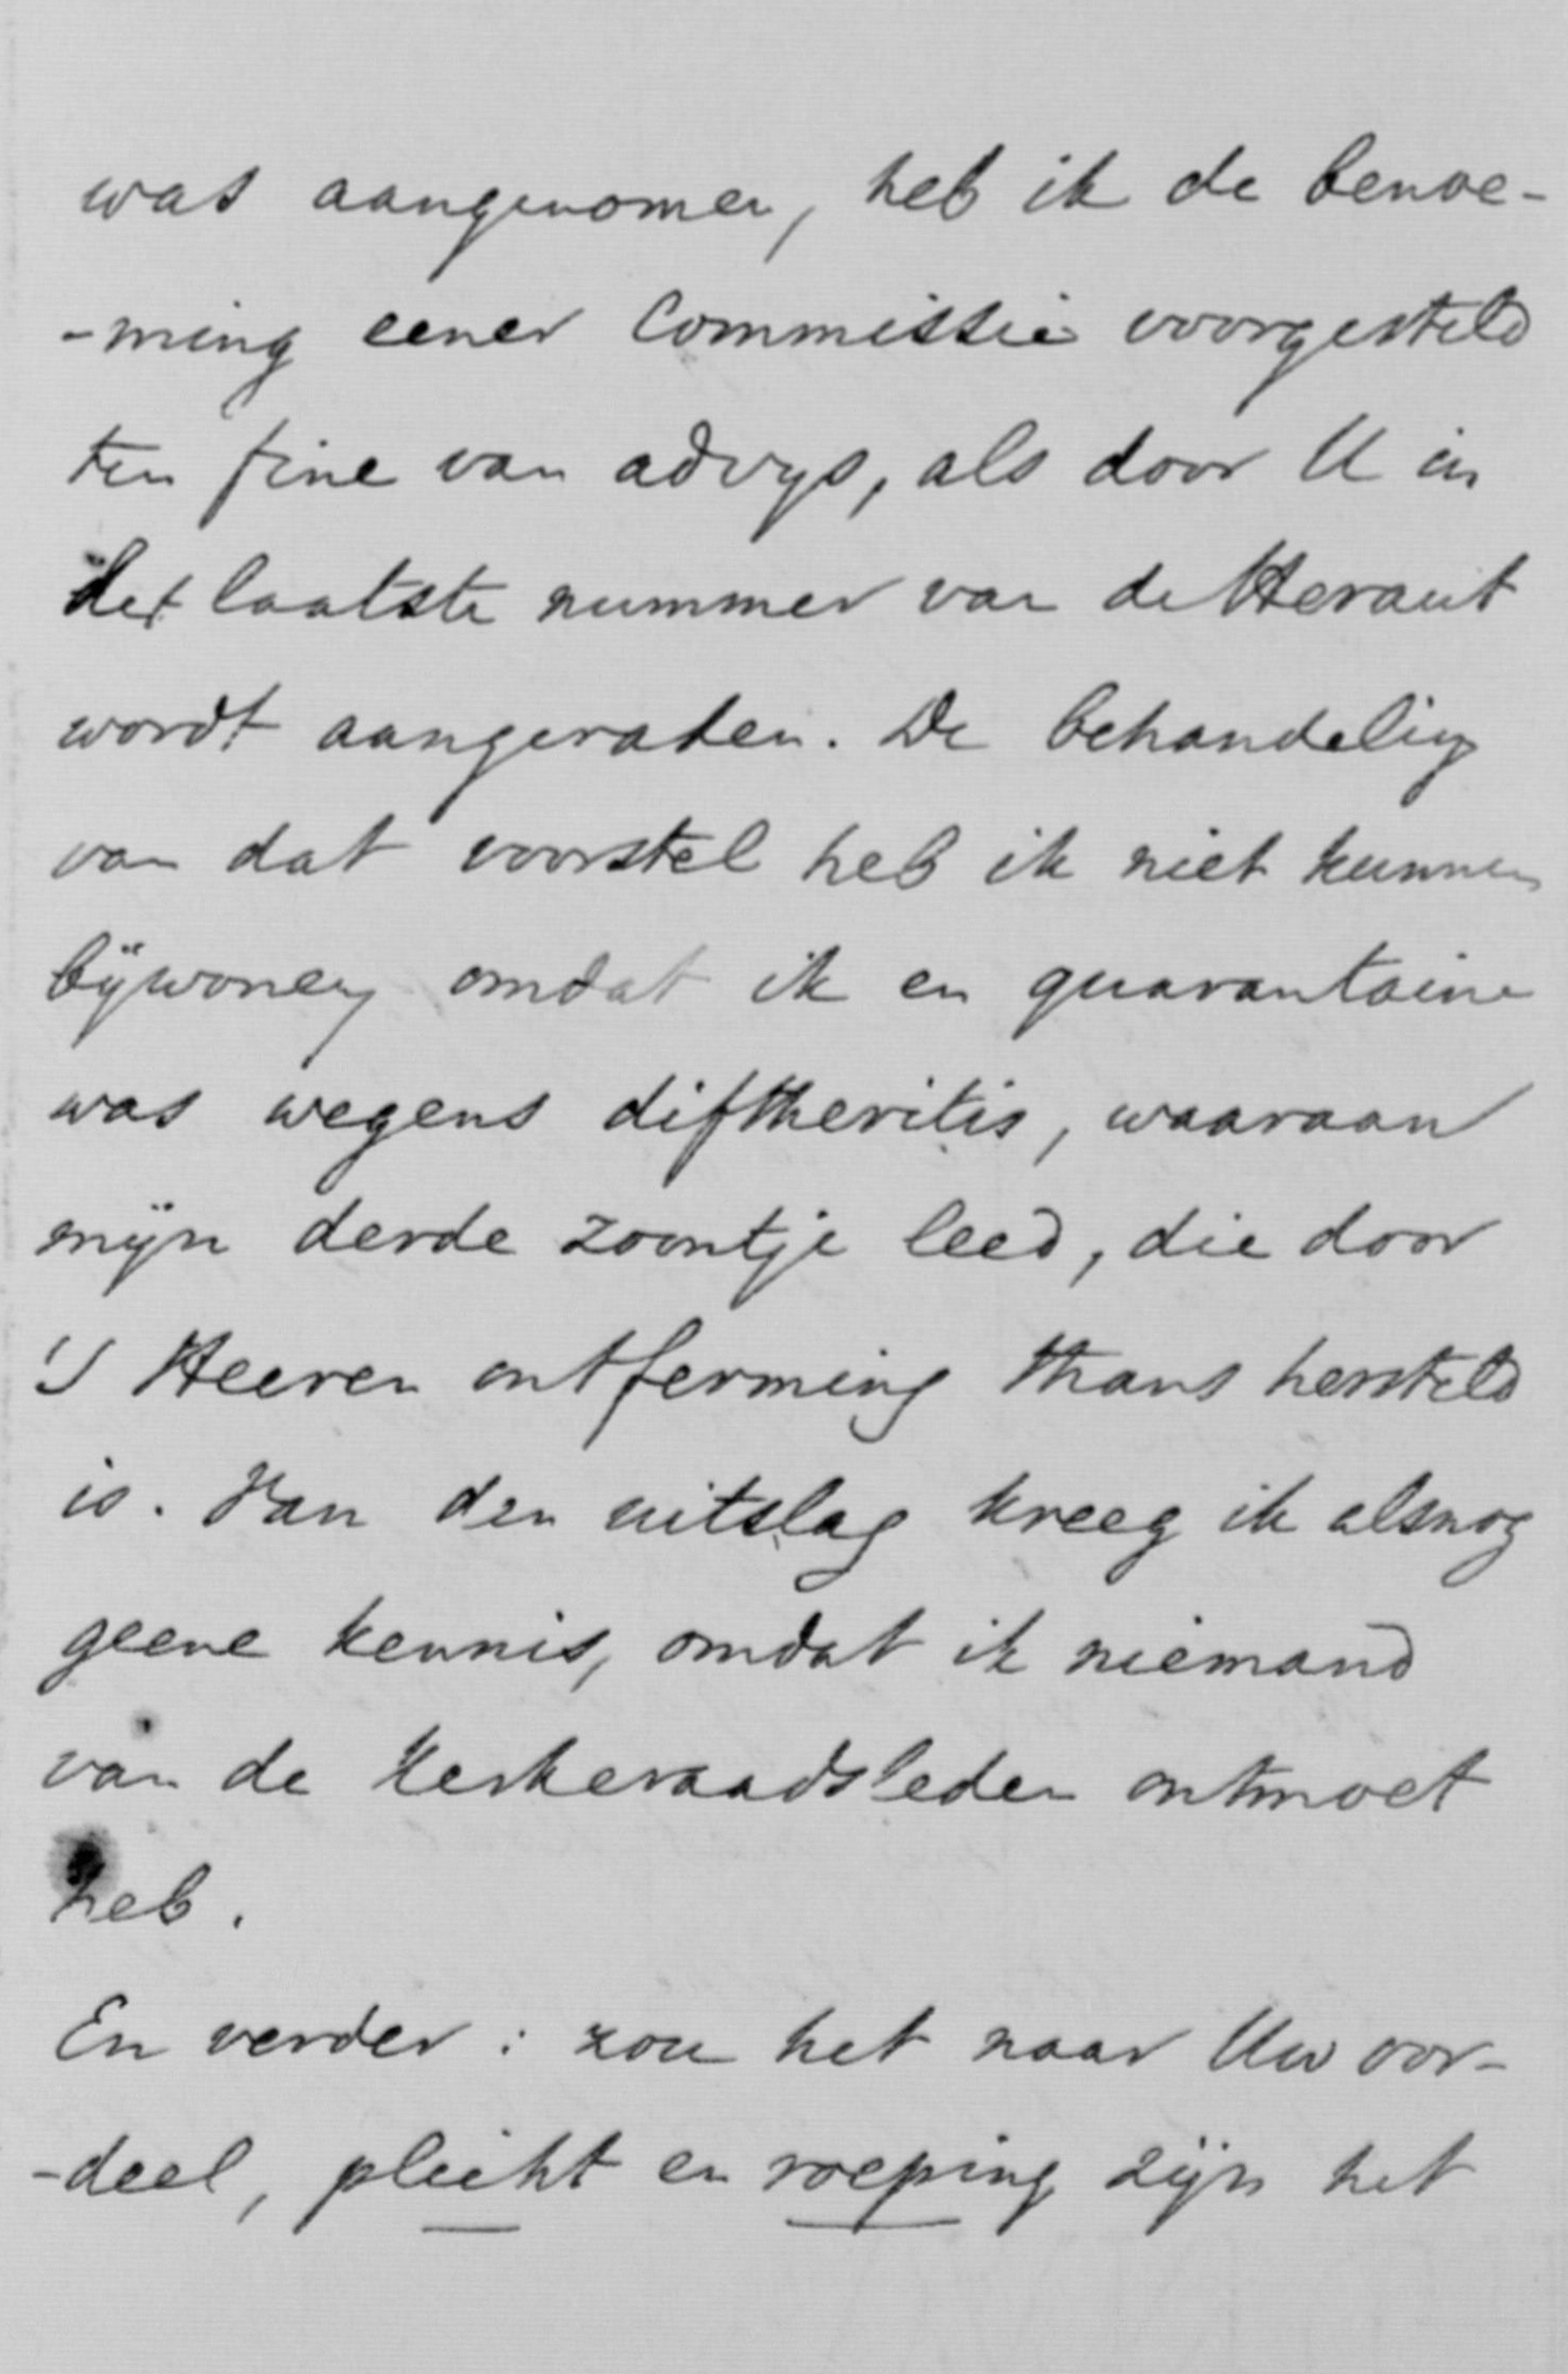 was aangenomen, heb ik de benoe-
-ming eener Commissie voorgesteld
ten fine van advys, als door U in
het laatste nummer van de Heraut
wordt aangeraden. De behandeling
van dat voorstel heb ik niet kunnen
bijwonen omdat ik en quarantaine
was wegens diftheritis, waaraan
mijn derde zoontje leed, die door
's Heeren ontferming thans hersteld
is. Van den uitslag kreeg ik alsnog
geene kennis, omdat ik niemand
van de kerkeraadsleden ontmoet
heb.
En verder: zou het naar Uw oor-
-deel, plicht en roeping zijn het